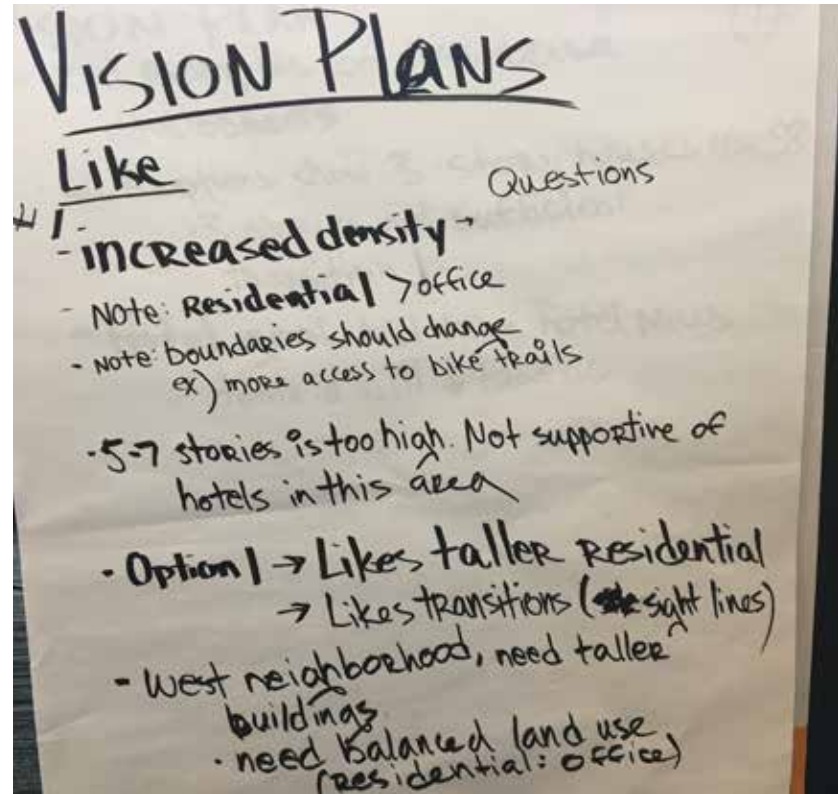 VISION PLANS
Like
Questions
#1
- increased density -
- Note: Residential > office
- Note: boundaries should change
ex) more access to bike trails
· 5-7 stories is too high. Not supportive of
hotels in this area
· Option 1 → Likes taller residential
→ Likes transitions (sight lines)
- West neighborhood, need taller
buildings
· need balanced land use
(residential: office)